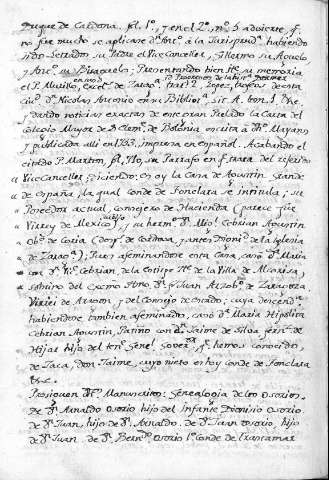 Duque de Cardona. fol. 1º, y en el 2º nº 5 advierte, q.
no fue mucho se aplicase Dn Ant. à la Jurisprud.ª habiendo
sido Letrados, su Padre el Vice Canceller, Guillermo su Abuelo
y Ant. su Bisabuelo; Presentando bien su memoria
el P. Murillo, Excel.s de Zarag.ª trat. 2. Lopez,
ciud. Dn Nicolas Antonio en su Biblioth. Lit. A. tom. 1.
dando noticias exactas de este gran Prelado la Carta del
Colegio Mayor de S. Clem.te de Bolonia escrita à Dn Mayans
y publicada alli en 1733, impresa en español. Acabando el
citado P. Marton, fol. 710, su Parrafo en q. trata del referido
Vice Canceller; diciendo: es oy la Casa de Agustin Grande
de España, la qual Conde de Fonclara se intitula; su
Poseedor actual consejero de Hacienda (parece fue
Virrey de Mexico), y su herm.º Migl. Cebrian Agustin
Obpo. de Coria (desp.s de Cordova, y antes Dign.d de la Iglesia
de Zarag.ª). Pues afeminandose esta Casa, casó Dª Maria
con Dn Cebrian, de la Cotiese Nl. de la Villa de Alcañiza,
sobrino del Excmo. Ilmo. Dn Juan Arzob.po de Zaragoza
Virrei de Aragon, y del Consejo de Estado; cuya descend.ª
habiendose tambien afeminado, casó Dª Maria Hipolita
Cebrian Agustin, Patiño con Dn Jaime de Silva Fern.z de
Hijar hijo del ten.te Gene.l Gover.r q. hemos conocido
de Jaca, Don Jaime, cuyo nieto es hoy conde de Fonclara
&c.
Prosiguen Manuscritos: Genealogia de los Osorios.
de Dn Arnaldo Osorio hijo del Infante Dionisio Osorio
de Dn Juan, hijo de Dn Arnaldo. de Dn Juan Osorio, hijo
de Dn Juan. de Dn Bern.do Osorio 1º Conde de Trastamar